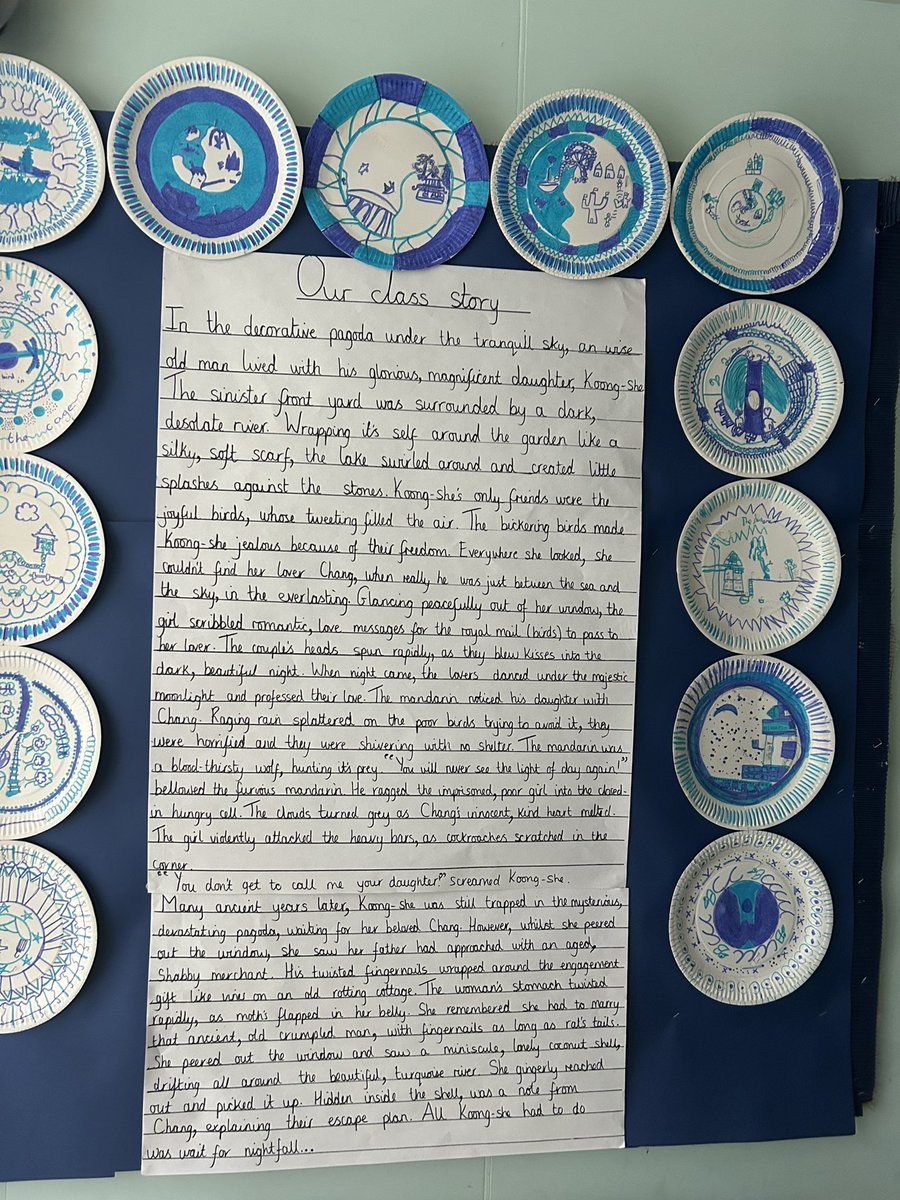 Our class story
In the decorative pagoda under the tranquill sky, an wise
old man lived with his glorious, magnificent daughter, Koong-she
The sinister front yard was surrounded by a dark,
desolate river. Wrapping it's self around the garden like a
silky, soft scarf, the lake swirled around and created little
splashes against the stones. Koong-she's only friends were the
joyful birds, whose tweeting filled the air. The bickering birds made
Koong-she jealous because of their freedom. Everywhere she looked, she
couldn't find her lover Chang, when really he was just between the sea and
the sky, in the everlasting. Glancing peacefully out of her window, the
girl scribbled romantic, love messages for the royal mail (birds) to pass to
her lover. The couple's heads spun rapidly, as they blew kisses into the
dark, beautiful night. When night came, the lovers danced under the majestic
moonlight and professed their love. The mandarin noticed his daughter with
Chang. Raging rain splattered on the poor birds trying to avoid it, they
were horrified and they were shivering with no shelter. The mandarin was
a blood-thirsty wolf, hunting it's prey. "You will never see the light of day again!"
bellowed the furious mandarin. He ragged the imprisoned, poor girl into the closed-
in hungry cell. The clouds turned grey as Chang's innocent, kind heart melted.
The girl violently attacked the heavy bars, as cockroaches scratched in the
corner.
"You don't get to call me your daughter!" screamed Koong-she.
Many ancient years later, Koong-she was still trapped in the mysterious,
devastating pagoda, waiting for her beloved Chang. However, whilst she peered
out the window, she saw her father had approached with an aged,
shabby merchant. His twisted fingernails wrapped around the engagement
gift like vines on an old rotting cottage. The woman's stomach twisted
rapidly, as moth's flapped in her belly. She remembered she had to marry
that ancient, old crumpled man, with fingernails as long as rat's tails.
She peered out the window and saw a miniscule, lonely coconut shell,
drifting all around the beautiful, turquoise river. She gingerly reached
out and picked it up. Hidden inside the shell, was a note from
Chang, explaining their escape plan. All Koong-she had to do
was wait for nightfall...
bird in
the cage